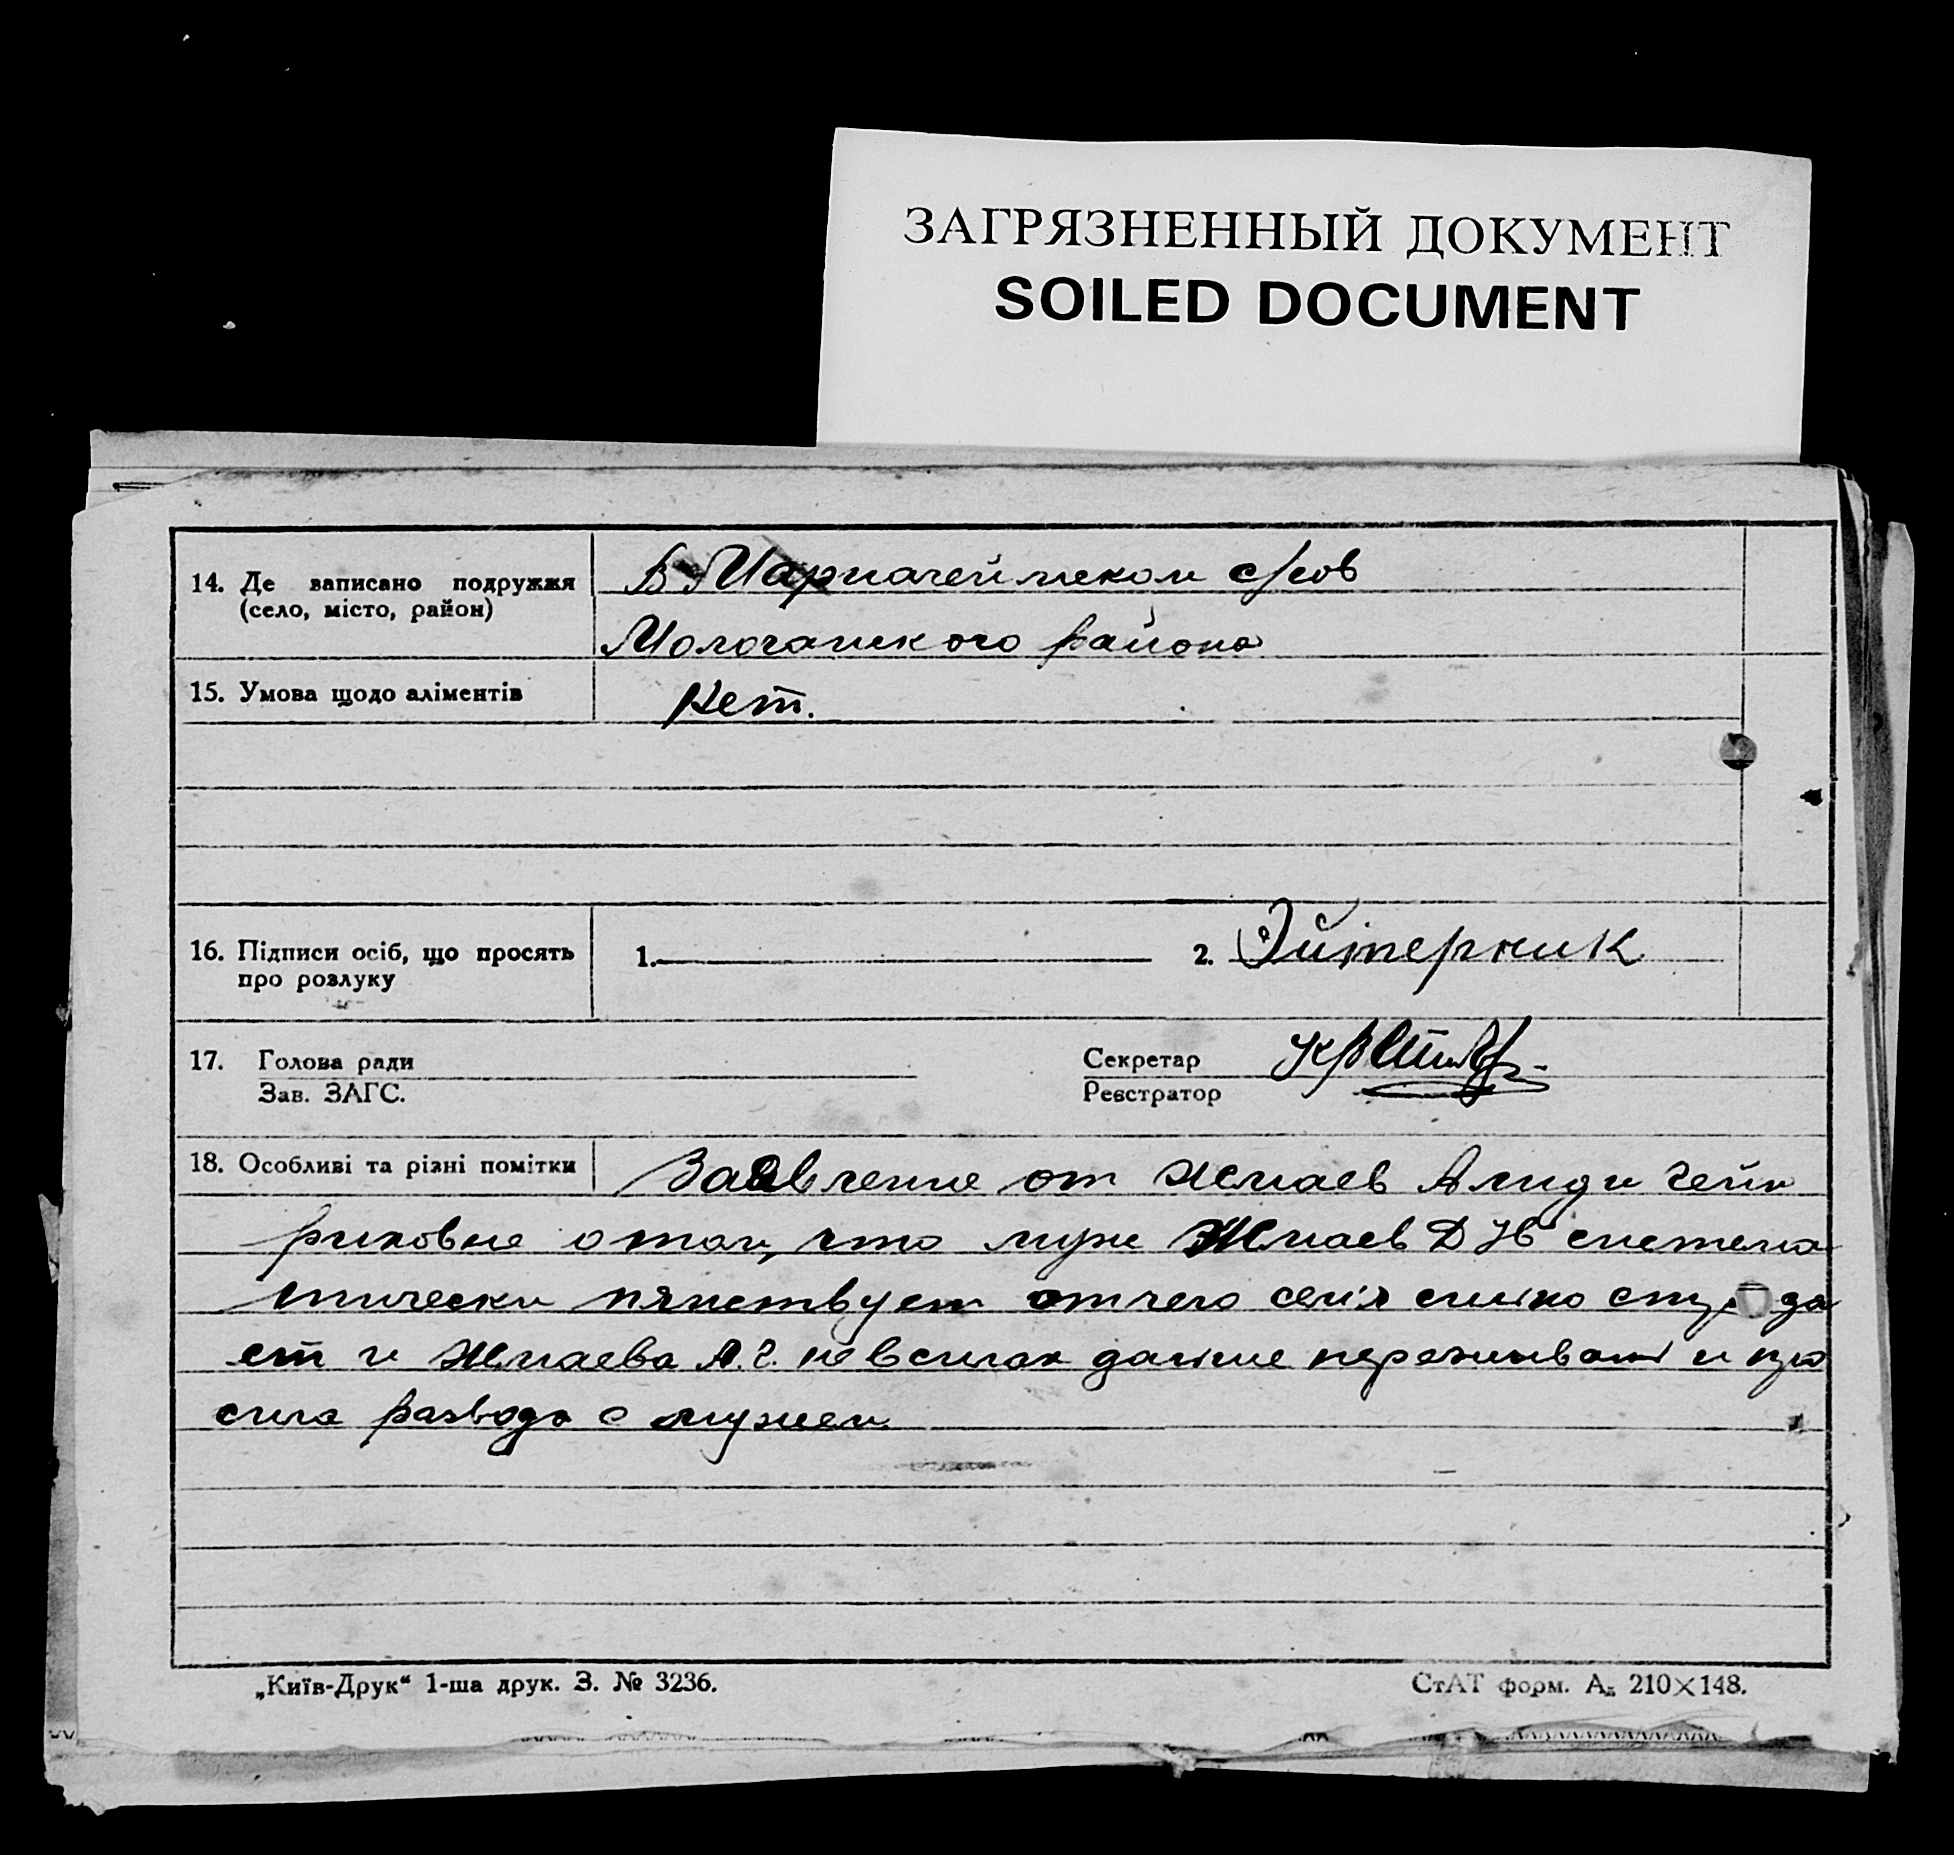 ЗАГРЯЗНЕННЫЙ ДОКУМЕНТ
SOILED DOCUMENT
14. Де записано подружжя (село, місто, район)
В с/сов
Молочанского района
15. Умова щодо аліментів
Нет.
16. Підписи осіб, що просять про розлуку
1. 2. Эйтерник
17. Голова ради Секретар
Зав. ЗАГС. Реєстратор
18. Особливі та різні помітки
Заявление от Жмаев Алиди Гейн
риховне о том, что муж Жмаев Д Ив система
тически пянствует отчего семя силно страда
ет и Жмаева А.Г. не всилах далше переживат и про
сила развода с мужем
„Київ-Друк“ 1-ша друк. З. № 3236.
СтАТ форм. А₅ 210×148.